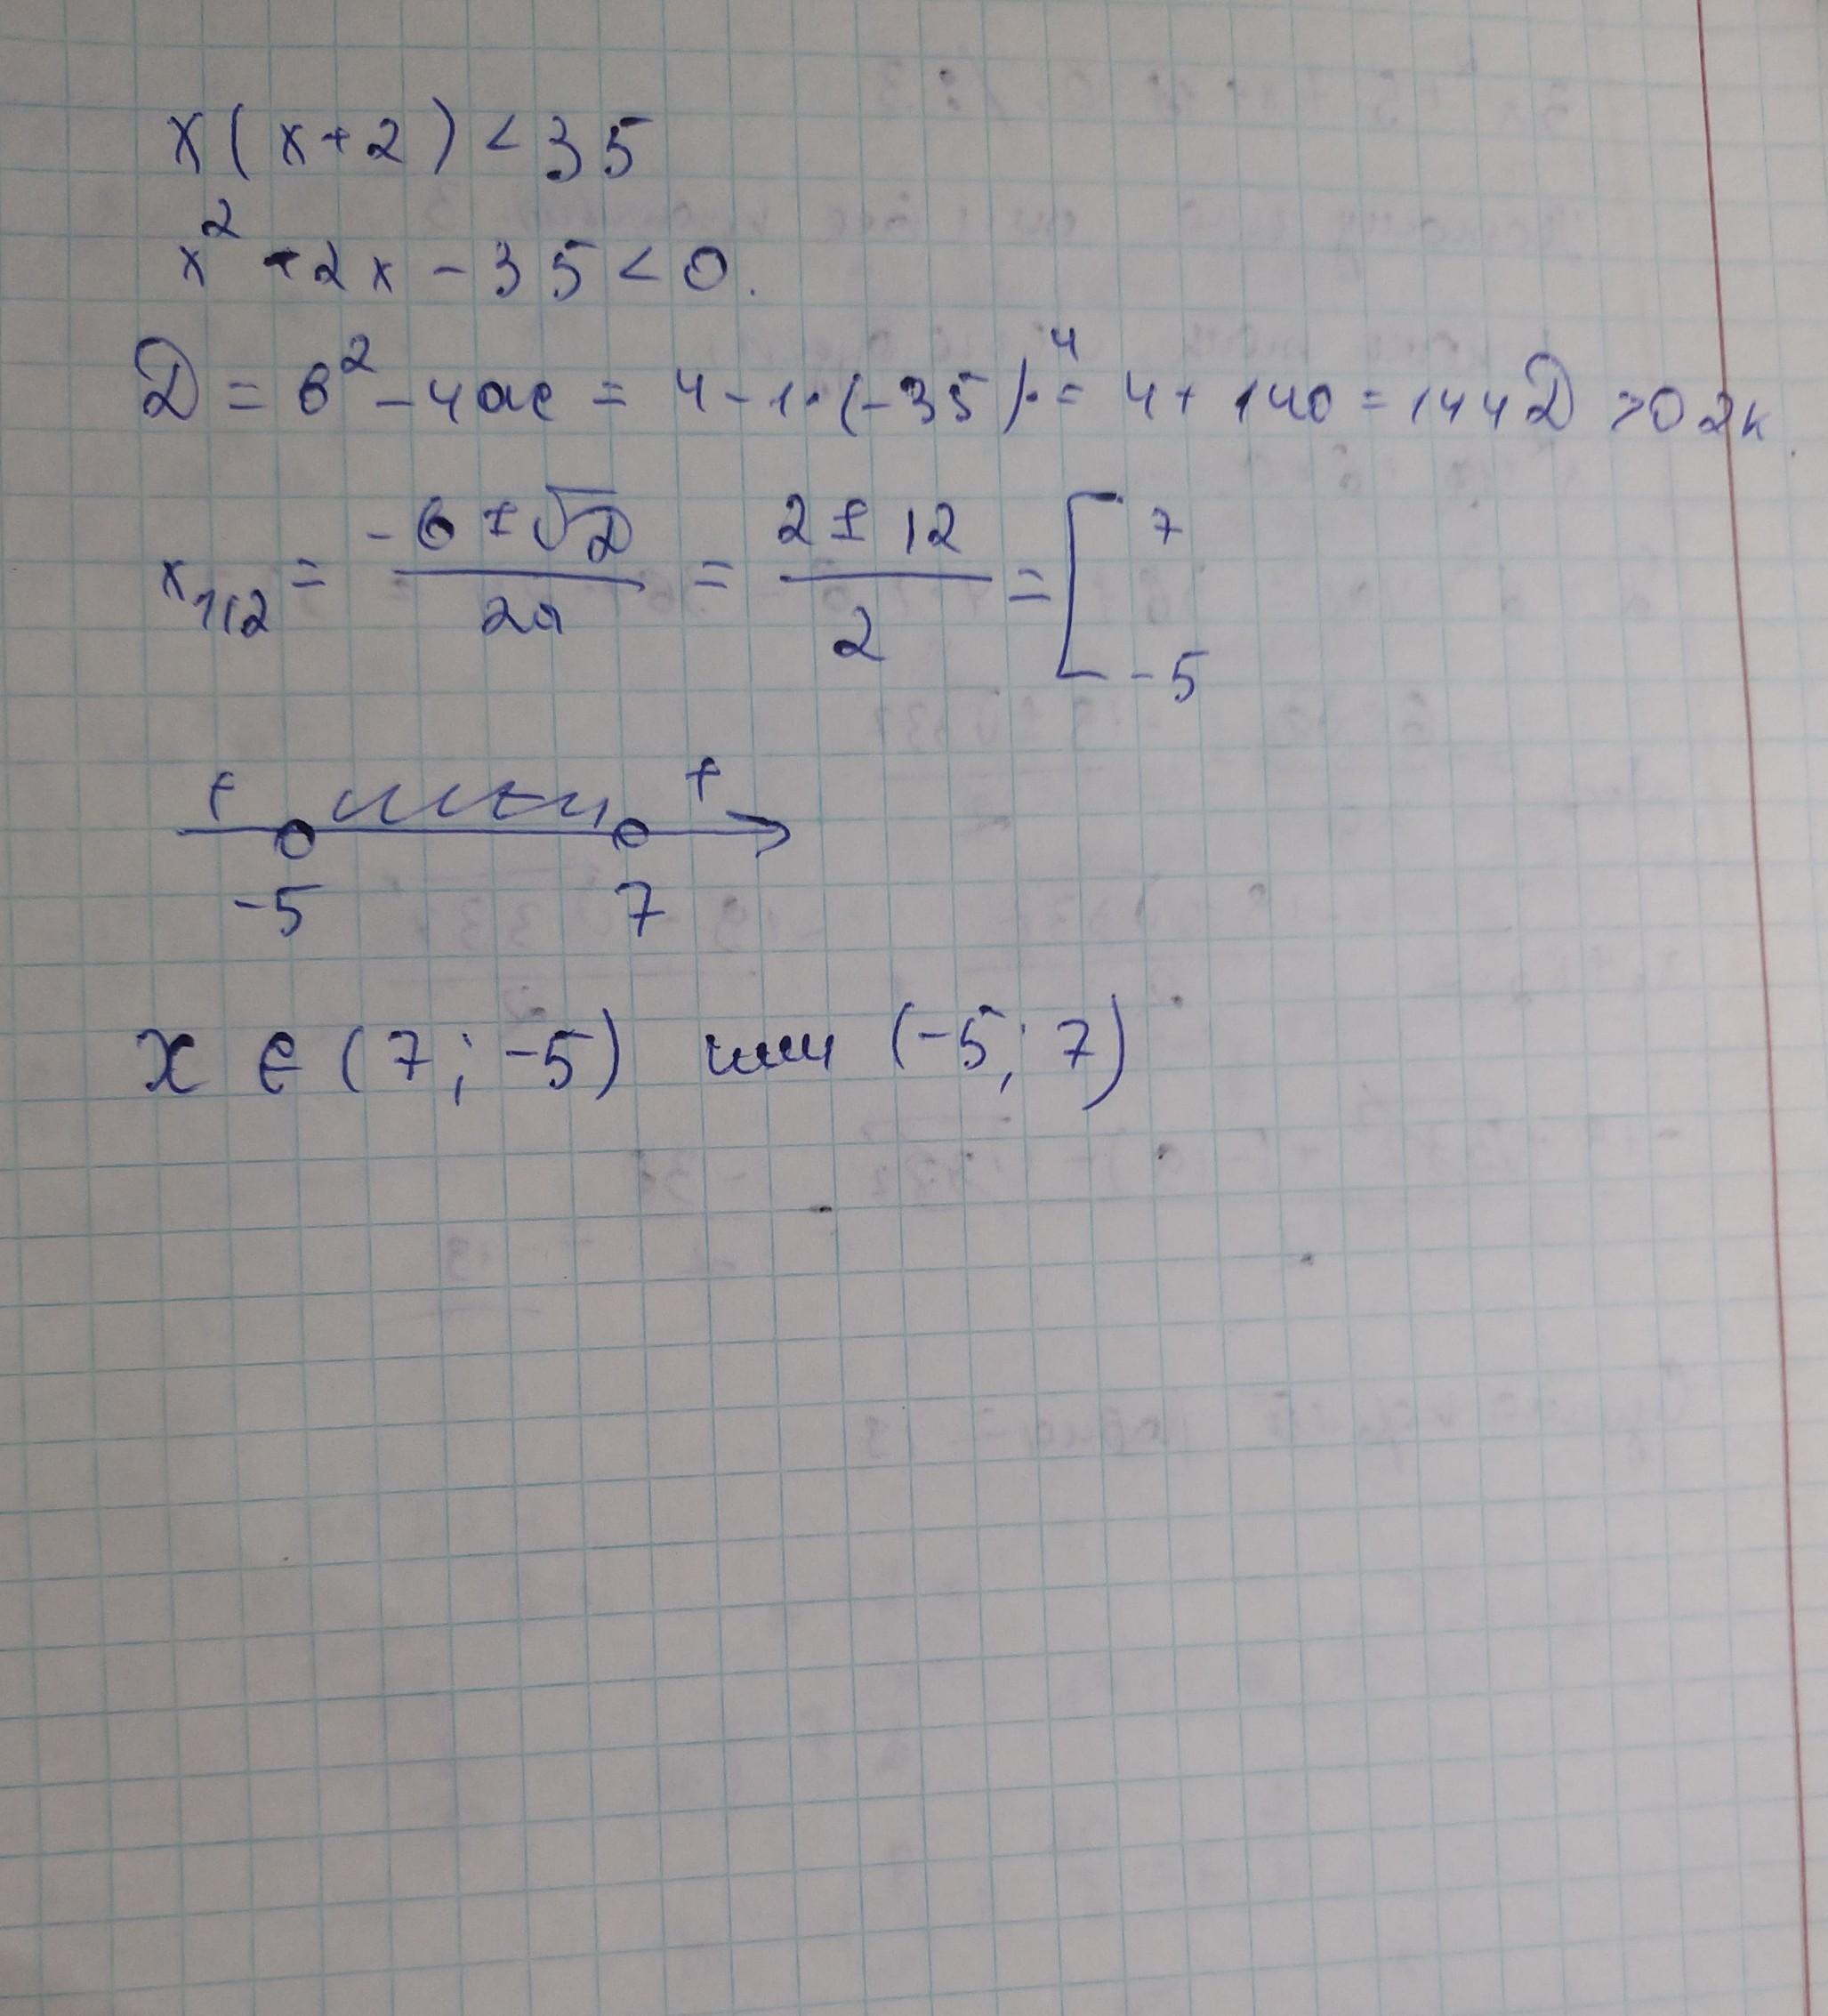 x(x+2)<35
x² +2x-35<0.
D = b²-4ac = 4-1·(-35)·4 = 4+140=144 D >0 2к
x₁,₂ = (-b ± √D)/(2a) = (2 ± 12)/2 = [7
-5
+ - +
-5 7
x ∈ (7; -5) или (-5; 7)